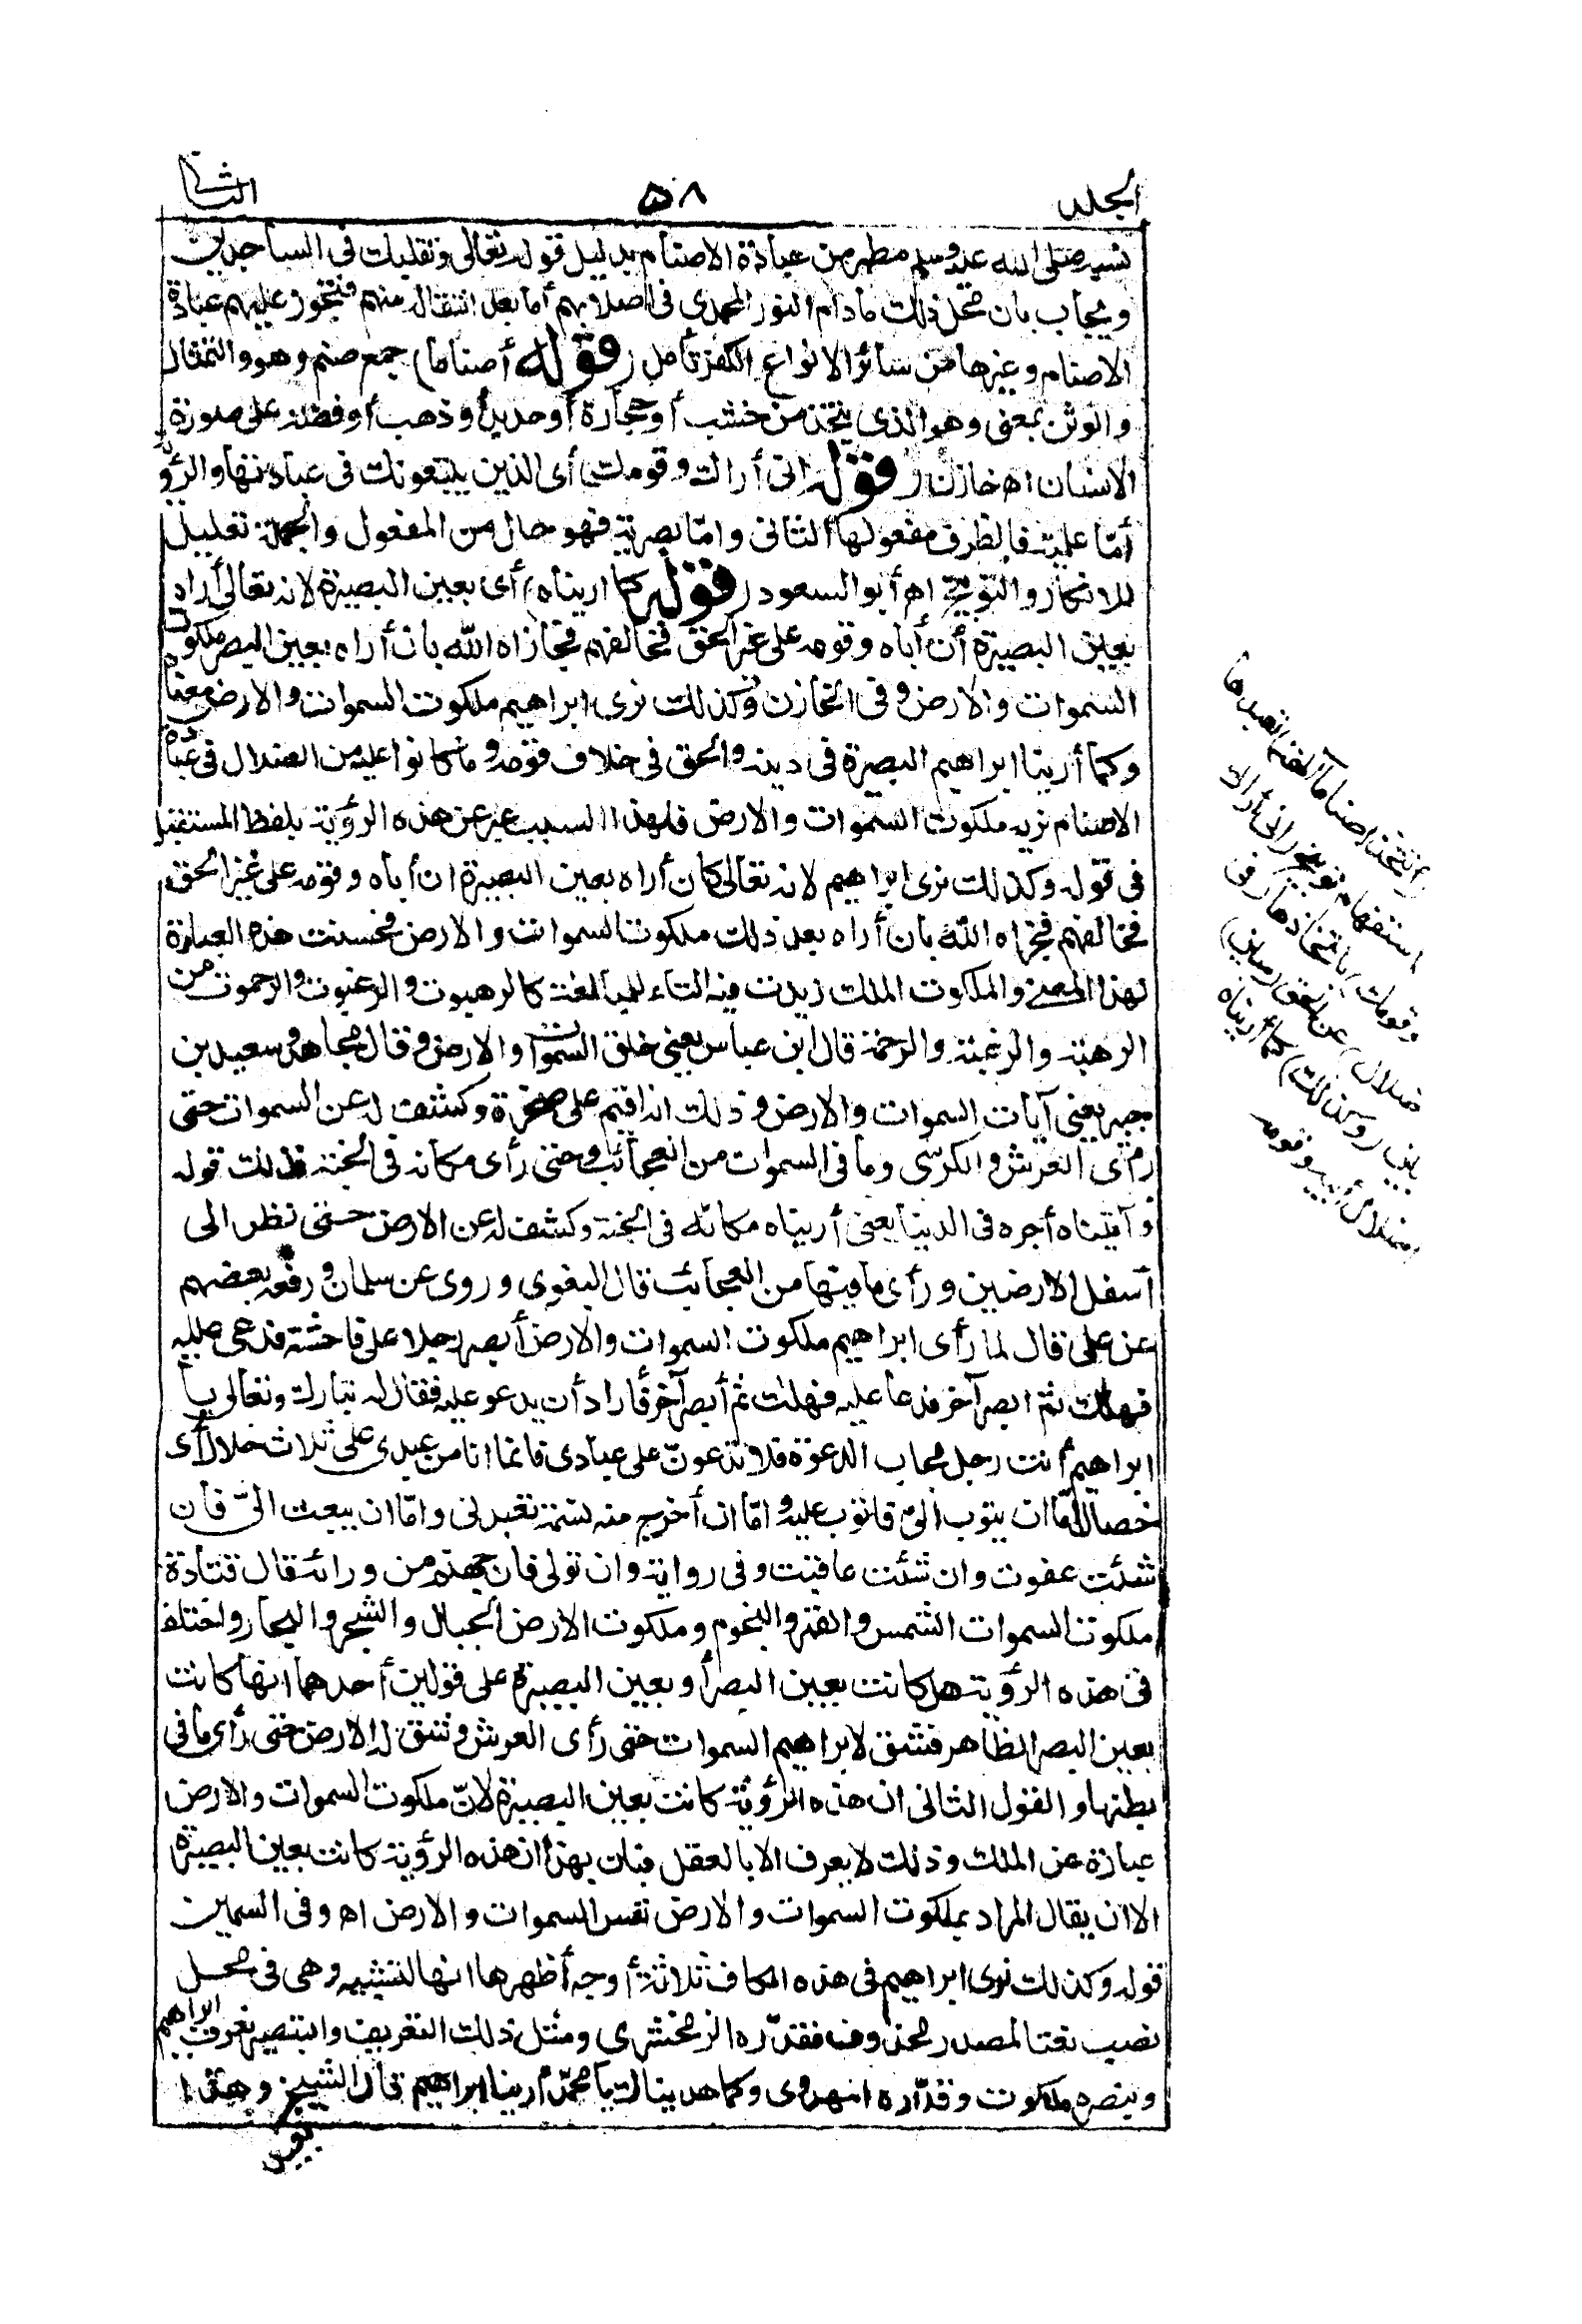 المجلد ٥٨ الثانى
نسبه صلى الله عليه وسلم مطهر من عبادة الاصنام بدليل قوله تعالى وتقلبك فى الساجدين
ويجاب بأن محل ذلك مادام النور المحمدى فى اصلابهم أما بعد انتقاله منهم فيجوز عليهم عبادة
الاصنام وغيرها من سائر الانواع الكفر تأمل (قوله أصناما) جمع صنم وهو والتمثال
والوثن بمعنى وهو الذى يتخذ من خشب أو حجارة أو حديد أو ذهب أو فضة على صورة
الانسان اه خازن (قوله انى أراك وقومك) أى الذين يتبعونك فى عبادتها والرؤية
أمّا علمية فالظرف مفعولها الثانى وامّا بصرية فهو حال من المفعول والجملة تعليل
للانكار والتوبيخ اه أبو السعود (قوله كما اريناه) أى بعين البصيرة لانه تعالى أراه
بعين البصيرة أن أباه وقومه على غير الحق فخالفهم فجازاه الله بان أراه بعين البصر ملكوت
السموات والارض وفى الخازن وكذلك نرى ابراهيم ملكوت السموات والارض معناه
وكما أرينا ابراهيم البصيرة فى دينه والحق فى خلاف قومه وما كانوا عليه من الضلال فى عبادة
الاصنام نريه ملكوت السموات والارض فلهذا السبب عبر عن هذه الرؤية بلفظ المستقبل
فى قوله وكذلك نرى ابراهيم لانه تعالى كان أراه بعين البصيرة ان أباه وقومه على غير الحق
فخالفهم فجزاه الله بان أراه بعد ذلك ملكوت السموات والارض فحسنت هذه العبارة
لهذا المعنى والملكوت الملك زيدت فيه التاء للمبالغة كالرهبوت والرغبوت والرحموت من
الرهبة والرغبة والرحمة قال ابن عباس يعنى خلق السموات والارض وقال مجاهد وسعيد بن
جبير يعنى آيات السموات والارض وذلك انه اقيم على صخرة وكشف له عن السموات حتى
رأى العرش والكرسى وما فى السموات من العجائب وحتى رأى مكانه فى الجنة فذلك قوله
وآتيناه أجره فى الدنيا يعنى أريناه مكانه فى الجنة وكشف له عن الارض حتى نظر الى
أسفل الارضين ورأى ما فيها من العجائب قال البغوى وروى عن سلمان ورفعه بعضهم
عن على قال لما رأى ابراهيم ملكوت السموات والارض أبصر رجلا على فاحشة فدعى عليه
فهلك ثم ابصر آخر فدعا عليه فهلك ثم أبصر آخر فأراد أن يدعو عليه فقال له تبارك وتعالى يا
ابراهيم أنت رجل مجاب الدعوة فلا تدعونّ على عبادى فانما انا من عبدى على ثلاث خلال أى
خصال امّا ان يتوب الىّ فاتوب عليه وامّا ان أخرج منه نسمة تعبدنى وامّا ان يبعث الىّ فان
شئت عفوت وان شئت عاقبت وفى رواية وان تولى فان جهنم من ورائه قال قتادة
ملكوت السموات الشمس والقمر والنجوم وملكوت الارض الجبال والشجر والبحار واختلف
فى هذه الرؤية هل كانت بعين البصر أو بعين البصيرة على قولين أحدهما انها كانت
بعين البصر الظاهر فشق لابراهيم السموات حتى رأى العرش وشق له الارض حتى رأى ما فى
بطنها والقول الثانى ان هذه الرؤية كانت بعين البصيرة لانّ ملكوت السموات والارض
عبارة عن الملك وذلك لا يعرف الا بالعقل فبان بهذا ان هذه الرؤية كانت بعين البصيرة
الا ان يقال المراد بملكوت السموات والارض نفس السموات والارض اه وفى السمين
قوله وكذلك نرى ابراهيم فى هذه الكاف ثلاثة أوجه أظهرها انها للتشبيه وهى فى محل
نصب نعتا لمصدر محذوف فقدّره الزمخشرى ومثل ذلك التعريف والتبصير نعرف ابراهيم
ونبصره ملكوت وقدّره المهدوى وكما هديناك يا محمّد أرينا ابراهيم قال الشيخ وهذا
بعيد
(أتتخذ اصناما آلهة) تعبدها
استفهام توبيخ (انى أراك
وقومك) باتخاذها (فى
ضلال) عن الحق (مبين)
بين (وكذلك) كما أريناه
اضلال أبيه وقومه